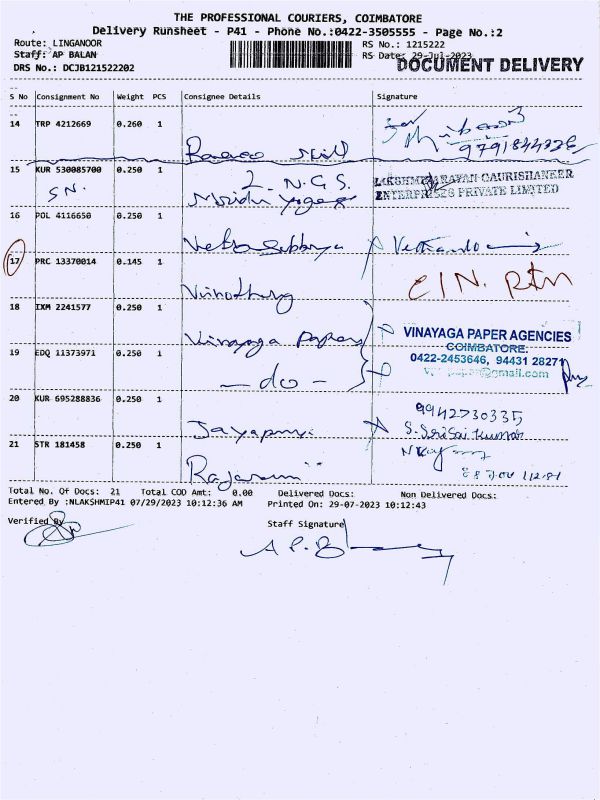 THE PROFESSIONAL COURIERS, COIMBATORE
Delivery Runsheet - P41 - Phone No.:0422-3505555 - Page No.:2
Route: LINGANOOR
RS No.: 1215222
Staff: AP BALAN
RS Date: 29-Jul-2023
DOCUMENT DELIVERY
DRS No.: DCJB121522202
S No Consignment No Weight PCS Consignee Details Signature
14 TRP 4212669 0.260 1
15 KUR 530085700 0.250 1
S N. L. N.G.S.
LAKSHMINARAYAN GAURISHANKER
ENTERPRISES PRIVATE LIMITED
16 POL 4116650 0.250 1
17 PRC 13370014 0.145 1
18 IXM 2241577 0.250 1
Vinayaga Papers
VINAYAGA PAPER AGENCIES
COIMBATORE.
0422-2453646, 94431 28271
19 EDQ 11373971 0.250 1
- do -
20 KUR 695288836 0.250 1
9942730335
S. Sri Sai Kumar
21 STR 181458 0.250 1
Total No. Of Docs: 21 Total COD Amt: 0.00 Delivered Docs: Non Delivered Docs:
Entered By :NLAKSHMIP41 07/29/2023 10:12:36 AM Printed On: 29-07-2023 10:12:43
Verified By
Staff Signature